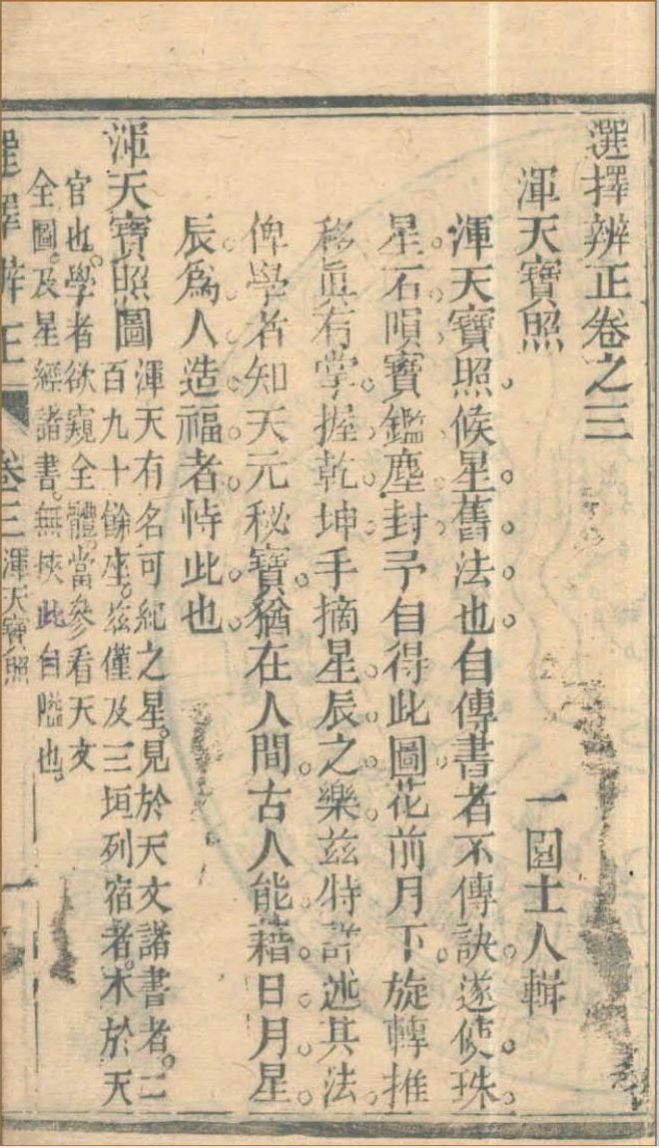 選擇辨正卷之三
渾天寶照
一園土人輯
渾天寶照候星舊法也自傳書者不傳訣遂使珠
星石唝寶鑑塵封予自得此圖花前月下旋轉推
移眞有掌握乾坤手摘星辰之樂茲特詳述其法
俾學者知天元秘寶猶在人間古人能藉日月星
辰爲人造福者恃此也
渾天寶照圖
渾天有名可紀之星見於天文諸書者二
百九十餘座茲僅及三垣列宿者本於天
官也學者欲窺全體當參看天文
全圖及星經諸書無挾此自隘也
選擇辨正
卷三渾天寶照
一